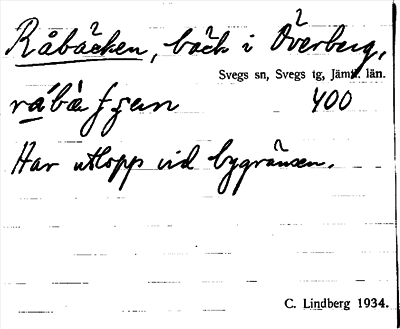 Råbäcken, bäck i Överberg,
Svegs sn, Svegs tg, Jämtl. län.
400
Har utlopp vid bygränsen.
C. Lindberg 1934.